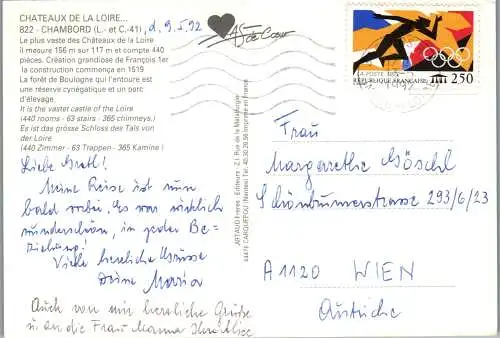 CHATEAUX DE LA LOIRE...
822 - CHAMBORD (L.- et C.-41), d. 9.5.92
Le plus vaste des Châteaux de la Loire
il mesure 156 m sur 117 m et compte 440
pièces. Création grandiose de François 1er
la construction commença en 1519
La forêt de Boulogne qui l'entoure est
une réserve cynégétique et un parc
d'élevage.
It is the vastest castle of the Loire
(440 rooms - 63 stairs - 365 chimneys.)
Es ist das grösse Schloss des Tals von
der Loire
(440 Zimmer - 63 Trappen - 365 Kamine)
Liebe Gretl!
Meine Reise ist nun
bald vorbei. Es war wirklich
wunderschön, in jeder Be-
ziehung!
Viele herzliche Grüsse
Deine Maria
Auch von mir herzliche Grüße
u. an die Frau Mama Ihre
ARTAUD Frères, Editeurs - Z.I. Rue de la Métallurgie
44476 CARQUEFOU (Nantes) Tél. 40.30.29.56 Imprimé en France
As de Cœur
LA POSTE 1992
RÉPUBLIQUE FRANÇAISE 2,50
1992
Frau
Margarethe Göschl
Schönbrunnerstrasse 293/6/23
A 1120 WIEN
Autriche